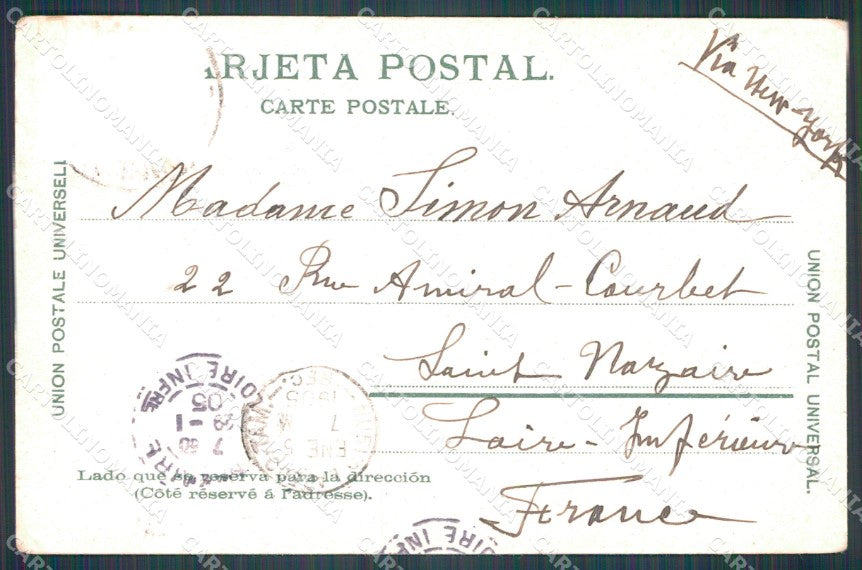 Via New-York
ARJETA POSTAL.
CARTE POSTALE.
UNION POSTALE UNIVERSELL
UNION POSTAL UNIVERSAL.
Madame Simon Arnaud
22 Rue Amiral-Courbet
Saint Nazaire
Loire-Inférieure
France
Lado que se reserva para la dirección
(Côté réservé á l'adresse).
LOIRE INFRE
7 50
29 - 1
05
1905
7
ENE
LOIRE INF
CARTOLINOMANIA